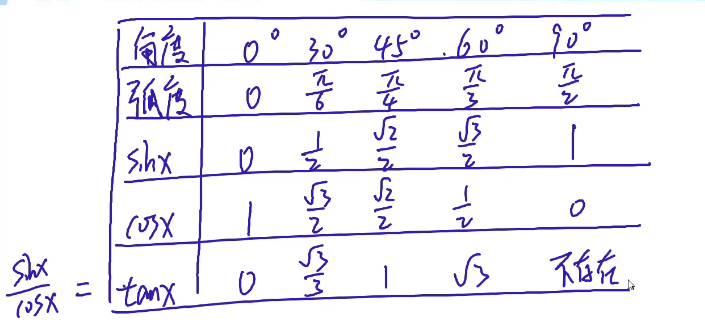 角度 0° 30° 45° 60° 90°
弧度 0 π/6 π/4 π/3 π/2
sinx 0 1/2 √2/2 √3/2 1
cosx 1 √3/2 √2/2 1/2 0
sinx/cosx = tanx 0 √3/3 1 √3 不存在